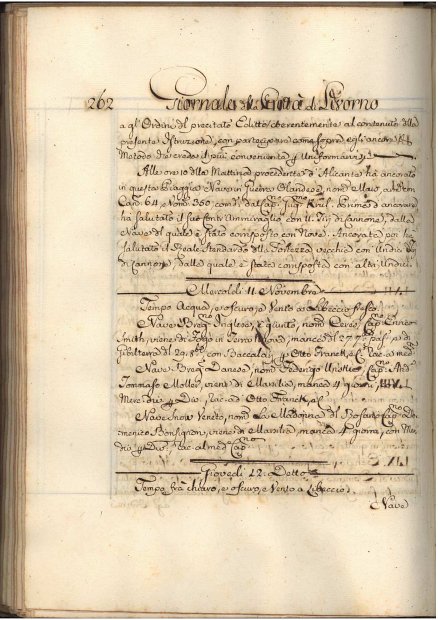 262 Giornale di Sanità di Livorno
a gl' Ordini del precitato Editto, coerentemente al contenuto della
presente Istruzione, con partecipare come sopra egli ancora il
Metodo che crede il più conveniente p Uniformarvisi
Alle ore 10 della Mattina procedente d' Alicante hà ancorato
in questa Spiaggia Nave in Guerra Olandese, nomᵃ di
Canⁱ 64 e Nomⁱ 350, comᵗᵃ dal Capⁿᵒ Kreil. Prima d' ancorare
hà salutato il suo Contr'Ammiraglio con Tiri di Cannone, dalla
Nave del quale è stato corrisposto con Nove. Ancorato poi hà
salutato il Reale Stendardo della Fortezza vecchia con Undici Tiri
di Cannone dalla quale è stato corrisposto con altri Undici
Mercoldì 11 Novembre
Tempo Acqua, e oscuro, e Vento a Libeccio fresco
Nave Inglese, è giunto, nomᵗᵃ Ceres, Capⁿᵒ Enrico
Smith, viene di in Terra Nuova, manca di 277, e di
Gibilterra di 29, con Baccalà, p Otto Franck, e
Nave Danese, nomᵗᵃ Federigo Capⁿᵒ And.
Tommaso Moller, viene di Marsilia, manca giorni, con
Merci p Div., rac. ad Otto Franck, e
Nave Snow Veneto, nomᵗᵃ La Madonna del Rosario Capⁿᵒ Do-
menico Bonsignori, viene di Marsilia, manca giorni, con Mer-
ci p Div., rac. al med.ᵒ Capⁿᵒ
Giovedì 12 Detto
Tempo frà chiaro, e oscuro, e Vento a Libeccio
Nave